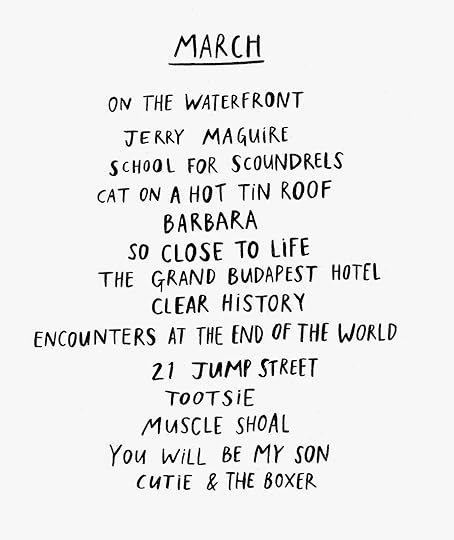 MARCH
ON THE WATERFRONT
JERRY MAGUIRE
SCHOOL FOR SCOUNDRELS
CAT ON A HOT TIN ROOF
BARBARA
SO CLOSE TO LIFE
THE GRAND BUDAPEST HOTEL
CLEAR HISTORY
ENCOUNTERS AT THE END OF THE WORLD
21 JUMP STREET
TOOTSIE
MUSCLE SHOAL
YOU WILL BE MY SON
CUTIE & THE BOXER